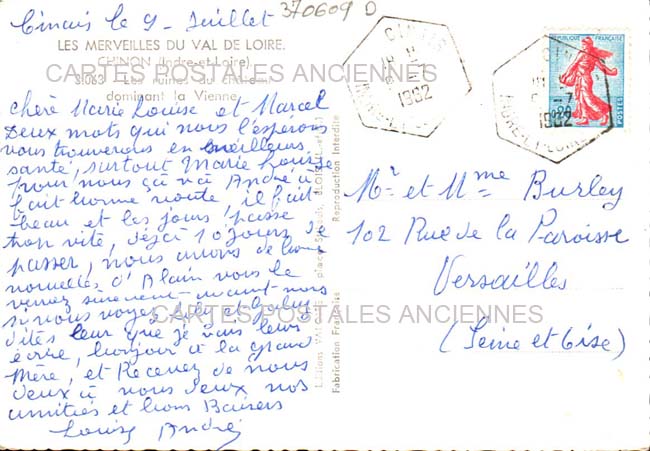 Cinais le 9 Juillet
370609 D
LES MERVEILLES DU VAL DE LOIRE.
CHINON (Indre-et-Loire).
dominant la Vienne
CARTES POSTALES ANCIENNES
chère Marie Louise et Marcel
deux mots qui nous l'espérons
vous trouverons en meilleurs
santé, surtout Marie Louise
pour nous ça va André à
fait bonne route, il fait
beau et les jours passe
trop vite, déjà 10 jours de
passer, nous avons de bonne
nouvelles d'Alain vous le
verrez surement avant nous
si vous voyez
dites leur que je vais leur
écrire, bonjour a la grand
Mère, et Recevez de nous
deux à vous deux nos
amitiés et bons Baisers
Louise André
Editions
Fabrication Française
Reproduction Interdite
CINAIS
1962
INDRE-ET-LOIRE
REPUBLIQUE FRANÇAISE
POSTES
0,20
Mr et Mme Burley
102 Rue de la Paroisse
Versailles
(Seine et Oise)
CARTES POSTALES ANCIENNES